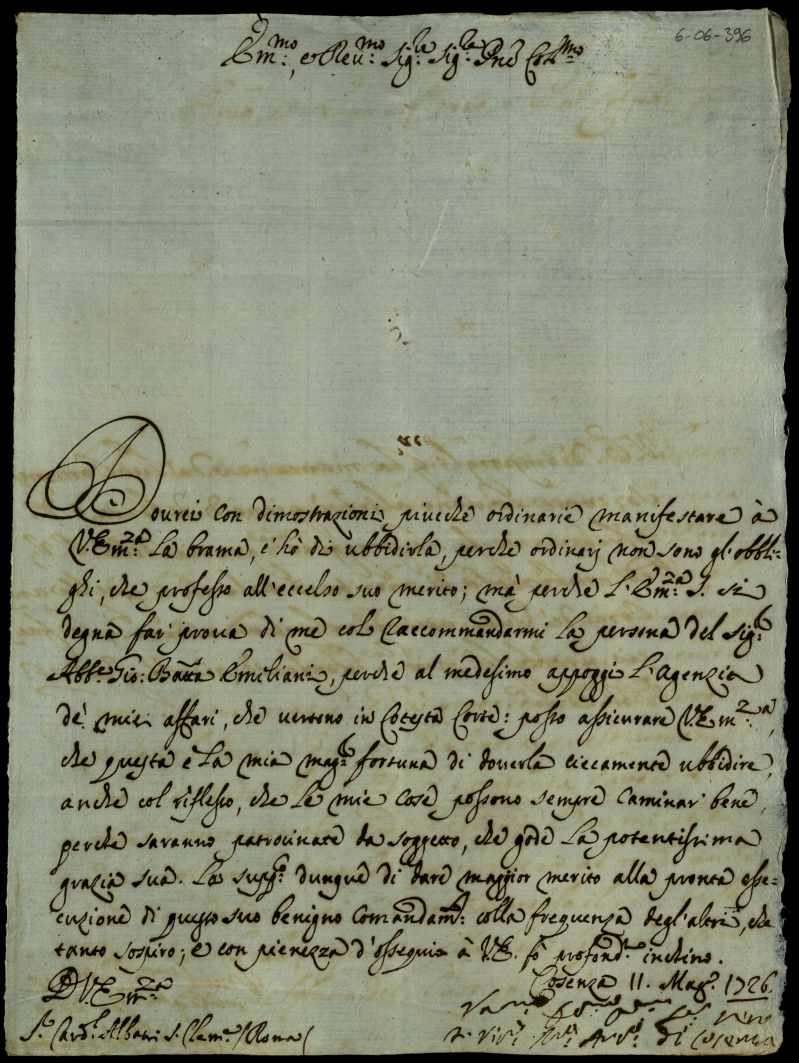 6-06-396
Em:mo, e Reu:mo Sig:re Sig:re Pne Col:mo
Dourei con dimostrazioni piucche ordinarie manifestare à
V. Em:za La brama, c'hò di ubbidirla, perche ordinarij non sono gl'obbli=
ghi, che professo all'eccelso suo merito; mà perche L'Em:za S. si
degna far proua di me col raccommandarmi La persona del Sig:e
Abb:e Gio: Batta Emiliani, perche al medesimo appoggi L'Agenzia
de' miei affari, che uertono in Cotesta Corte: posso assicurare V. Em:za,
che questa è La mia mag:e fortuna di douerla ciecamente ubbidire,
anche col riflesso, che Le mie cose possono sempre caminar' bene,
perche saranno patrocinate da soggetto, che gode La potentissima
grazia sua. La supp:co dunque di dare maggior merito alla pronta esse=
cuzione di questo suo benigno Comandam:to colla frequenza degl'altri, che
tanto sospiro; e con pienezza d'ossequio à V. E. fò profond:mo inchino.
D. V. Em:za
Cosenza 11. Mag:o 1726
S:r Card:l Albani S. Clem:e / Roma /
di Cosenza